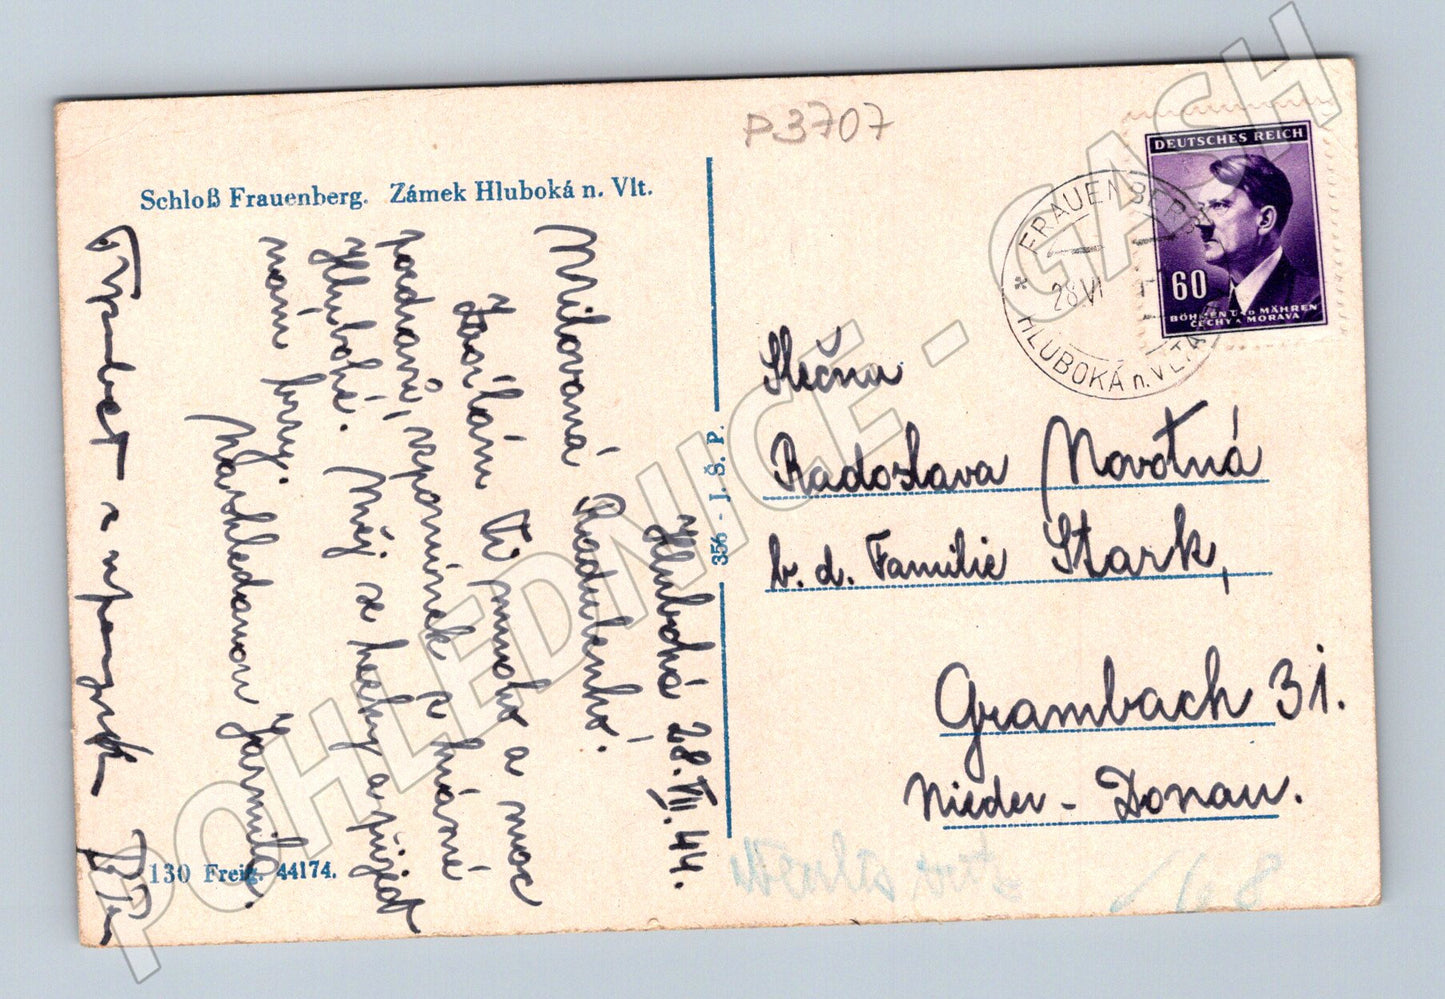 P3707
Schloß Frauenberg. Zámek Hluboká n. Vlt.
Hluboká 28.VII.44.
Milovaná Radulenko.
Zasílám Ti mnoho a moc
pozdravů, vzpomínek z krásné
Hluboké. Měj se hezky a přijeď
nám brzy.
Naschledanou Jarmila.
130 Freig. 44174.
356 - J. Š. P.
DEUTSCHES REICH
60
BÖHMEN UND MÄHREN
ČECHY A MORAVA
* FRAUENBERG
28 VI
HLUBOKÁ n. VLTA
Slečna
Radoslava Novotná
b. d. Familie Stark,
Grambach 31.
Nieder - Donau.
POHLEDNICE - GASH